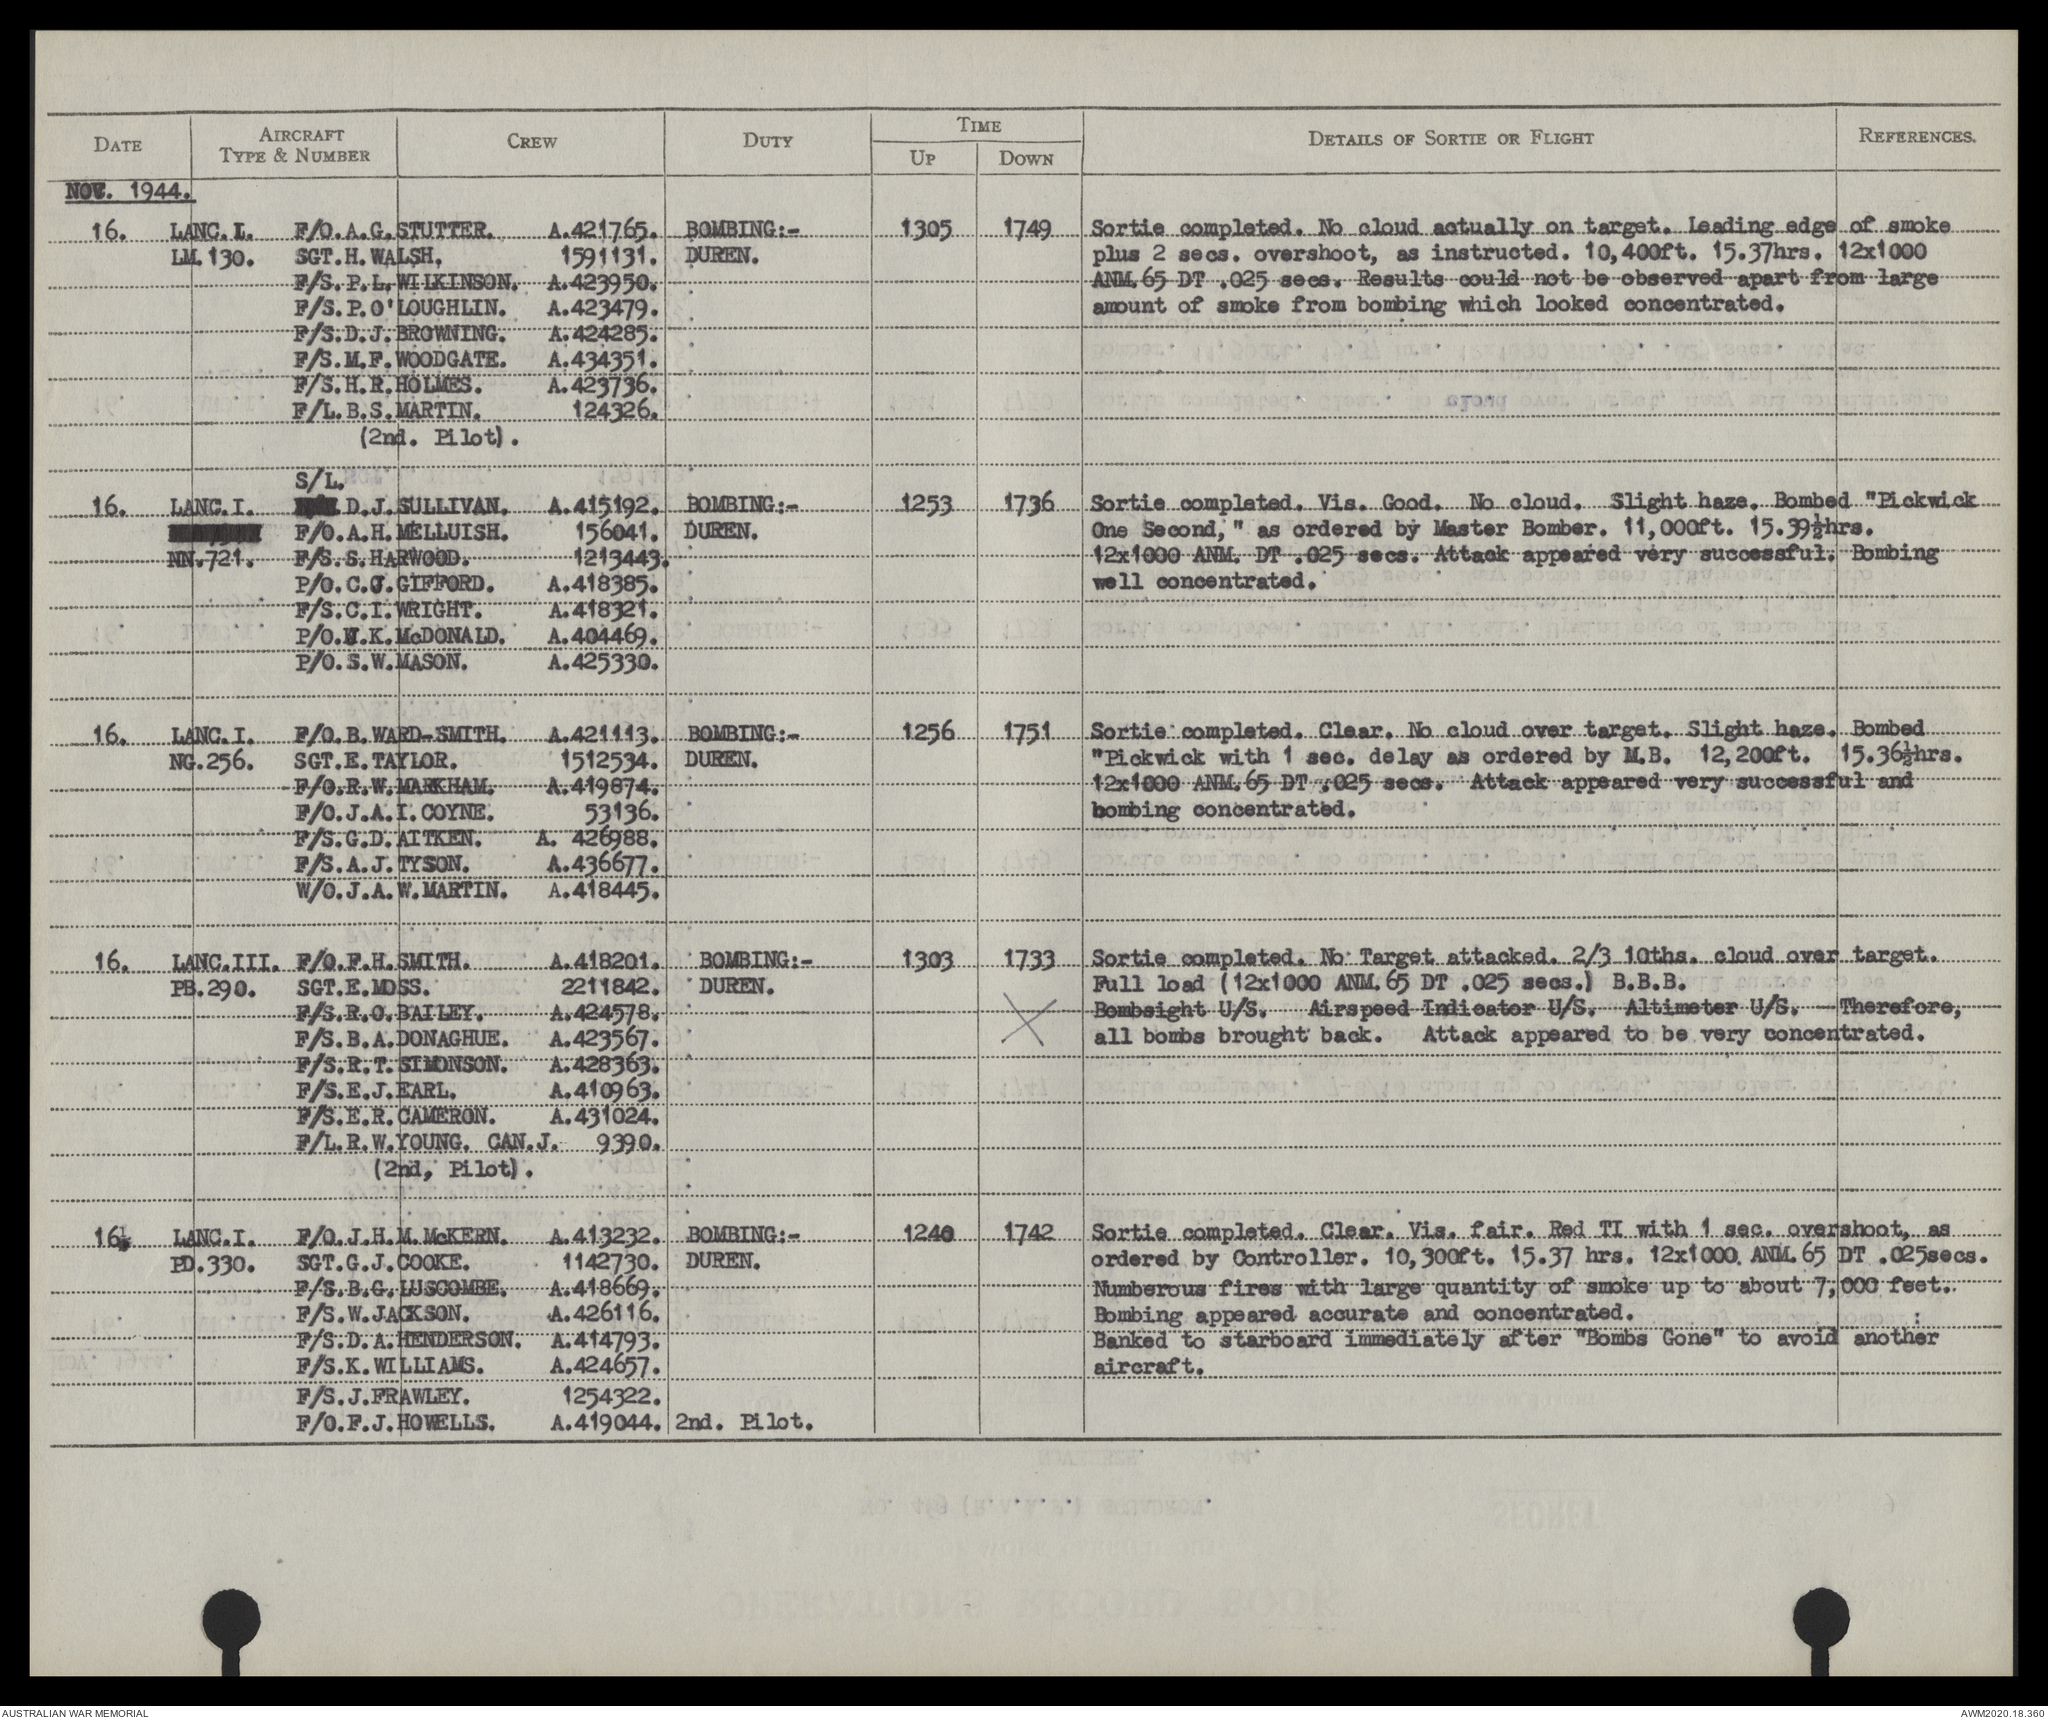 DATE AIRCRAFT TYPE & NUMBER CREW DUTY TIME UP DOWN DETAILS OF SORTIE OR FLIGHT REFERENCES.
NOV. 1944.
16. LANC.I. F/O.A.G.STUTTER. A.421765. BOMBING:- 1305 1749 Sortie completed. No cloud actually on target. Leading edge of smoke
LM.130. SGT.H.WALSH. 1591131. DUREN. plus 2 secs. overshoot, as instructed. 10,400ft. 15.37hrs. 12x1000
F/S.P.L.WILKINSON. A.423950. ANM.65 DT .025 secs. Results could not be observed apart from large
F/S.P.O'LOUGHLIN. A.423479. amount of smoke from bombing which looked concentrated.
F/S.D.J.BROWNING. A.424285.
F/S.M.F.WOODGATE. A.434351.
F/S.H.R.HOLMES. A.423736.
F/L.B.S.MARTIN. 124326.
(2nd. Pilot).
S/L.
16. LANC.I. D.J.SULLIVAN. A.415192. BOMBING:- 1253 1736 Sortie completed. Vis. Good. No cloud. Slight haze. Bombed "Pickwick
F/O.A.H.MELLUISH. 156041. DUREN. One Second," as ordered by Master Bomber. 11,000ft. 15.39½hrs.
NN.721. F/S.S.HARWOOD. 1213443. 12x1000 ANM. DT .025 secs. Attack appeared very successful. Bombing
P/O.C.J.GIFFORD. A.418385. well concentrated.
F/S.C.I.WRIGHT. A.418321.
P/O.W.K.McDONALD. A.404469.
P/O.S.W.MASON. A.425330.
16. LANC.I. F/O.B.WARD-SMITH. A.421113. BOMBING:- 1256 1751 Sortie completed. Clear. No cloud over target. Slight haze. Bombed
NG.256. SGT.E.TAYLOR. 1512534. DUREN. "Pickwick with 1 sec. delay as ordered by M.B. 12,200ft. 15.36½hrs.
F/O.R.W.MARKHAM. A.419874. 12x1000 ANM.65 DT .025 secs. Attack appeared very successful and
F/O.J.A.I.COYNE. 53136. bombing concentrated.
F/S.G.D.AITKEN. A. 426988.
F/S.A.J.TYSON. A.436677.
W/O.J.A.W.MARTIN. A.418445.
16. LANC.III. F/O.F.H.SMITH. A.418201. BOMBING:- 1303 1733 Sortie completed. No Target attacked. 2/3 10ths. cloud over target.
PB.290. SGT.E.MOSS. 2211842. DUREN. Full load (12x1000 ANM.65 DT .025 secs.) B.B.B.
F/S.R.O.BAILEY. A.424578. Bombsight U/S. Airspeed Indicator U/S. Altimeter U/S. Therefore,
F/S.B.A.DONAGHUE. A.423567. all bombs brought back. Attack appeared to be very concentrated.
F/S.R.T.SIMONSON. A.428363.
F/S.E.J.EARL. A.410963.
F/S.E.R.CAMERON. A.431024.
F/L.R.W.YOUNG. CAN.J. 9390.
(2nd, Pilot).
16. LANC.I. F/O.J.H.M.McKERN. A.413232. BOMBING:- 1240 1742 Sortie completed. Clear. Vis. fair. Red TI with 1 sec. overshoot, as
PD.330. SGT.G.J.COOKE. 1142730. DUREN. ordered by Controller. 10,300ft. 15.37 hrs. 12x1000. ANM.65 DT .025secs.
F/S.B.G.LUSCOMBE. A.418669. Numberous fires with large quantity of smoke up to about 7,000 feet.
F/S.W.JACKSON. A.426116. Bombing appeared accurate and concentrated.
F/S.D.A.HENDERSON. A.414793. Banked to starboard immediately after "Bombs Gone" to avoid another
F/S.K.WILLIAMS. A.424657. aircraft.
F/S.J.FRAWLEY. 1254322.
F/O.F.J.HOWELLS. A.419044. 2nd. Pilot.
AUSTRALIAN WAR MEMORIAL AWM2020.18.360